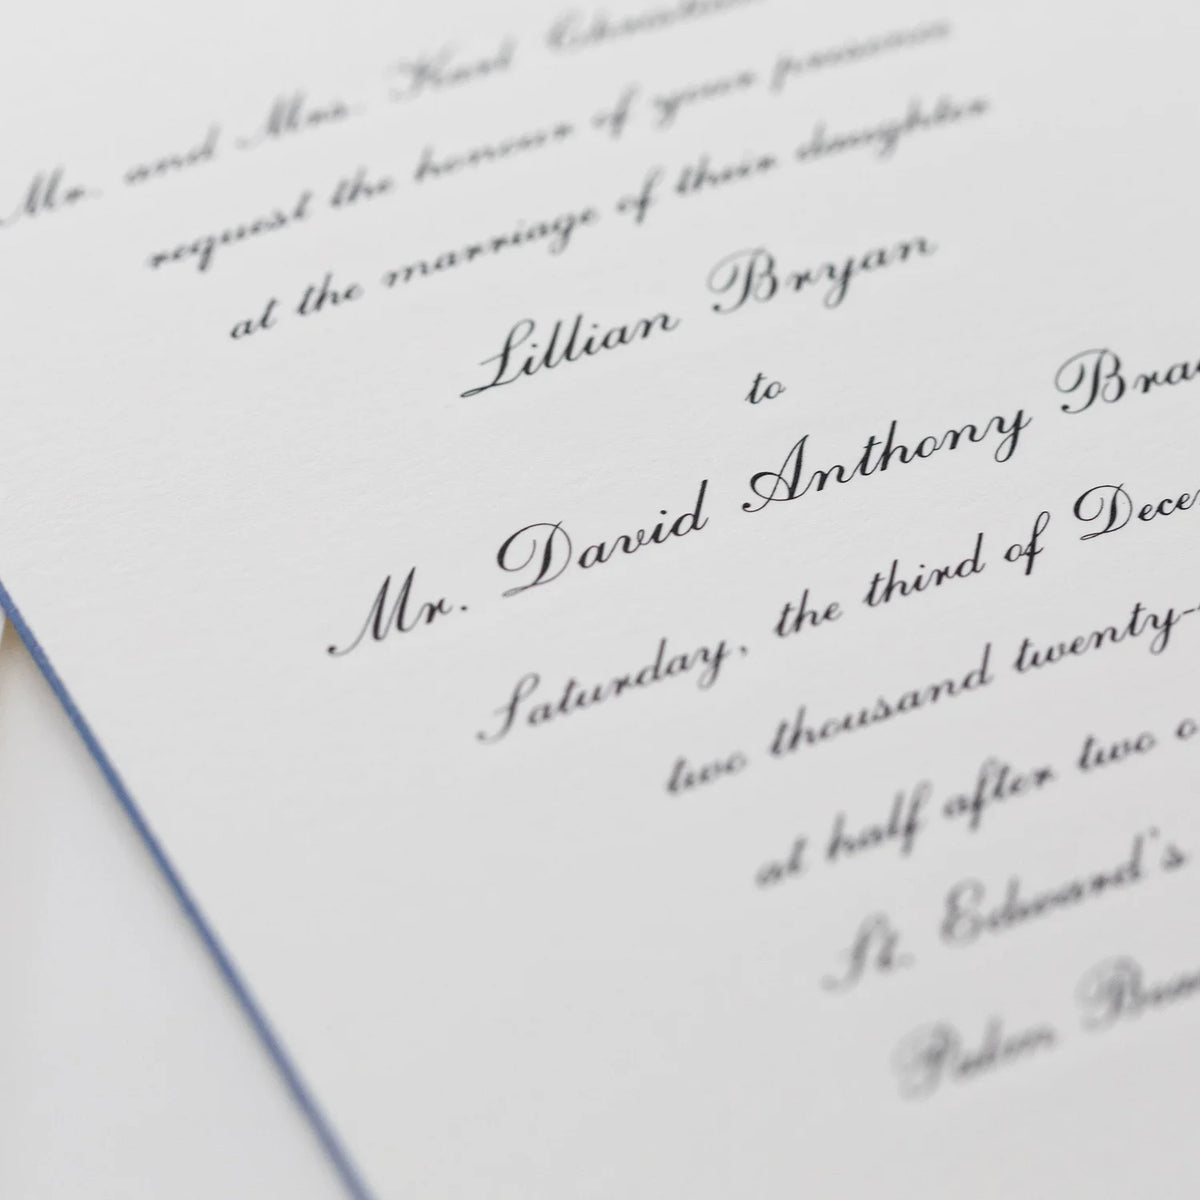 Mr. and Mrs. Karl
request the honour of your presence
at the marriage of their daughter
Lillian Bryan
to
Mr. David Anthony Bra
Saturday, the third of Dece
two thousand twenty-
at half after two o
St. Edward's
Palm Bea